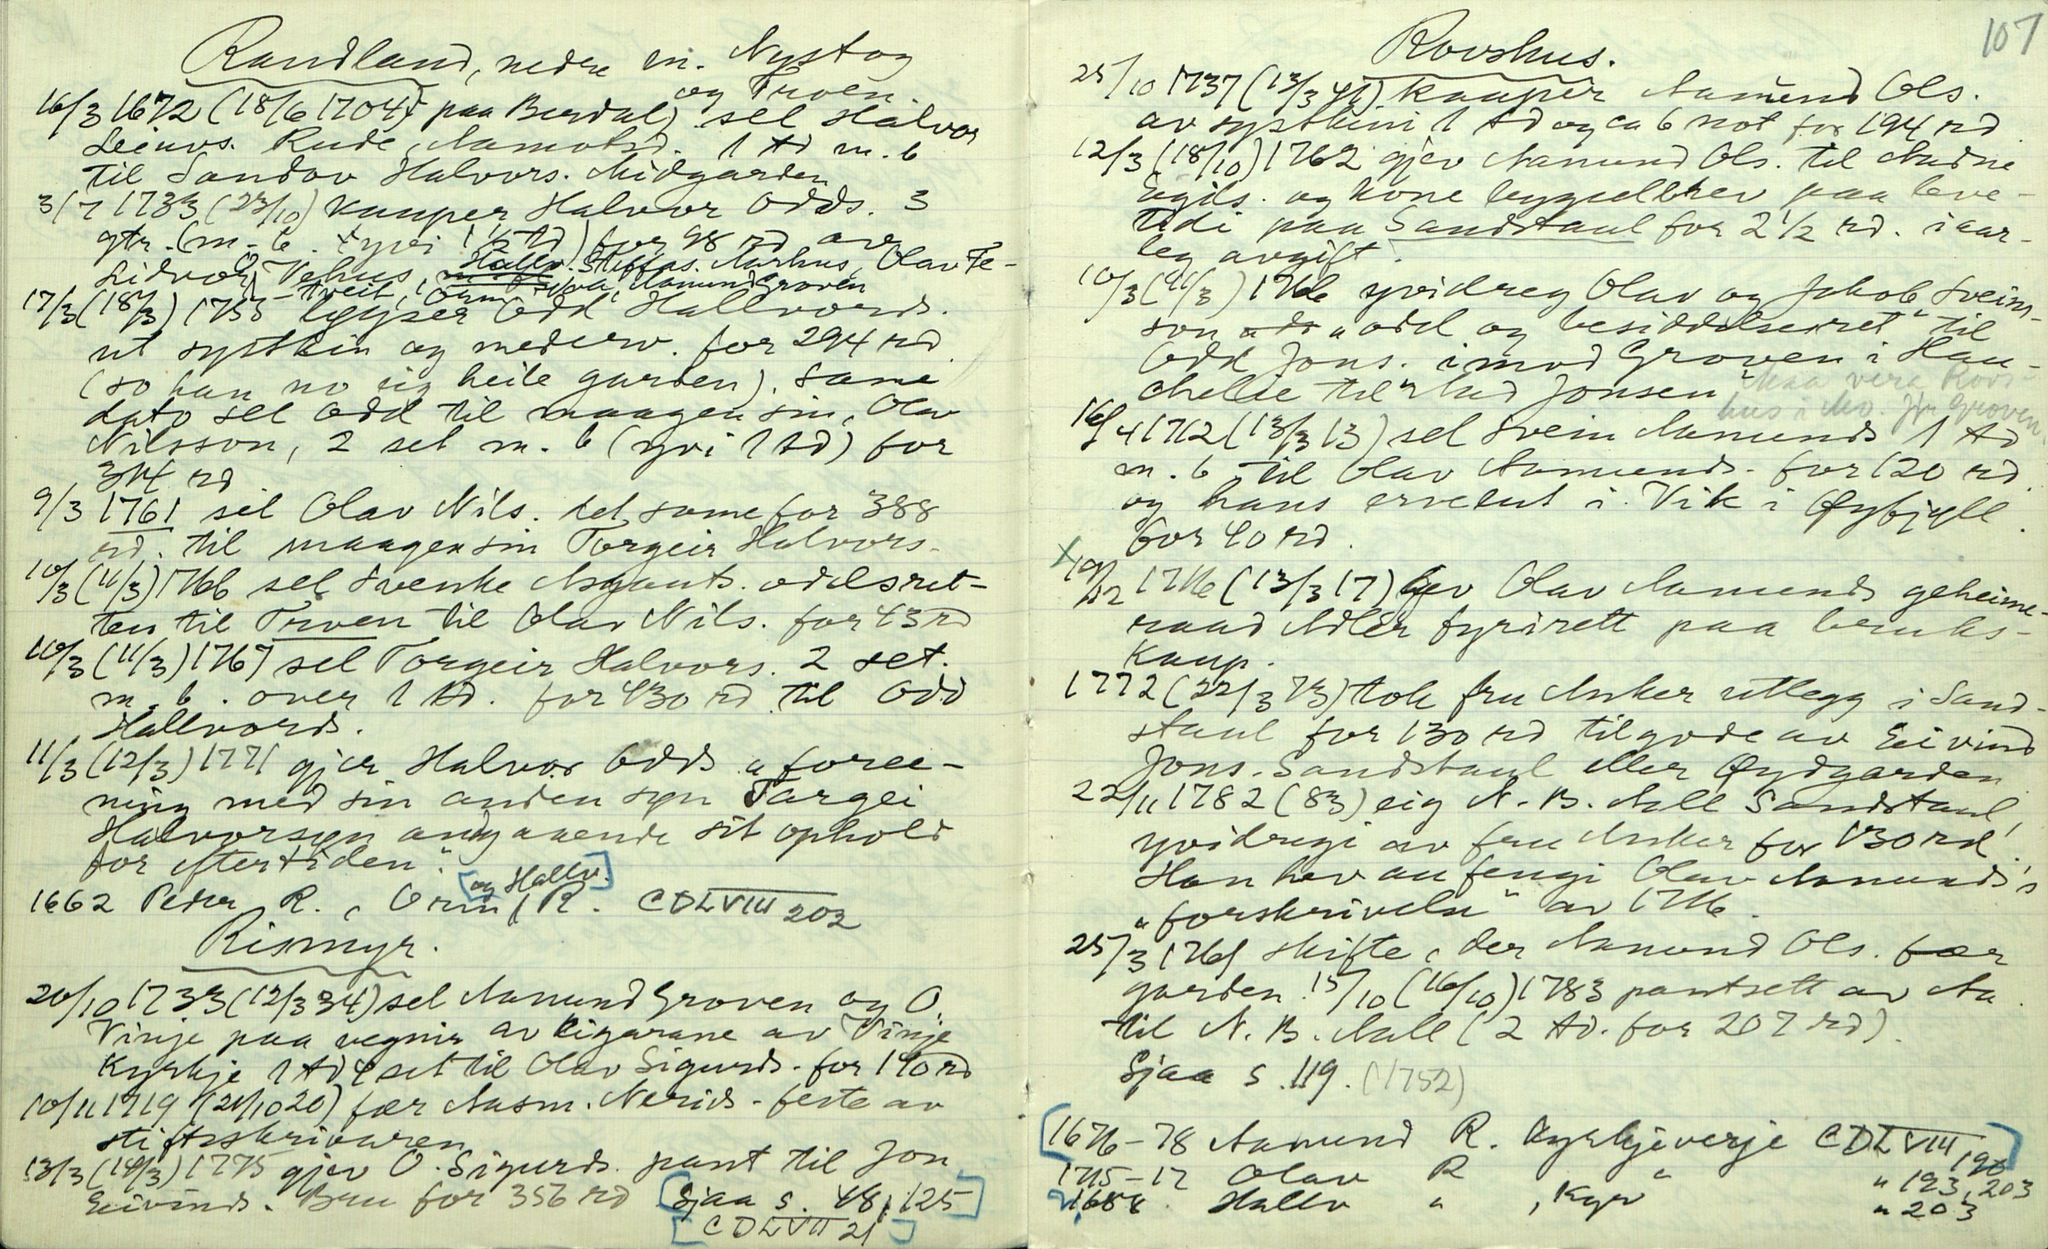 Randland, nedre m. Nystog
og Troen.
16/3 1672 (18/6 1704 paa Berdal) sel Halvor
Leivs. Rude, 1 td m. b
til Sandov Halvors. Midgarden
3/7 1733 (23/10) kauper Halvor Odds. 3
qtr. (m. b. yvi 1 1/2 td) for 98 rd av
Vehus, Hallv. Steffns. Aarhus, Olav Te-
Tveit, Orm Amund Groven
17/3 (18/3) 1755 løyser Odd Hallvords.
ut systkin og mederv. for 294 rd
(so han no eig heile garden). Same
dato sel Odd til maagen sin, Olav
Nilsson, 2 set m. b (yvi 1 td) for
344 rd
9/3 1761 sel Olav Nils. det same for 388
rd. til maagen sin Torgeir Halvors.
10/3 (11/3) 1766 sel Svenke Asgauts. odelsret-
ten til Troen til Olav Nils. for 43 rd
10/3 (11/3) 1767 sel Torgeir Halvors. 2 set.
m. b. over 1 td. for 430 rd til Odd
Hallvords.
11/3 (12/3) 1771 gjer Halvor Odds. "foree-
ning med sin anden søn Targei
Halvorsøn angaaende sit ophold
for eftertiden".
1662 Peder R., Orm [og Hallv.] R. CDLVIII 202
Rismyr.
20/10 1733 (12/3 34) sel Aamund Groven og O.
Vinje paa vegnir av eigarane av Vinje
Kyrkje 1 td 4 set til Olav Sigurds. for 140 rd
10/11 1719 (21/10 20) fær Aasm. Nerids. feste av
stiftsskrivaren
13/3 (14/3) 1775 gjev O. Sigurds. pant til Jon
Eivinds. Bru for 356 rd [Sjaa s. 48, 125]
[CDLVII 21]
107
Rovshus.
25/10 1737 (13/3 41) kauper Aamund Ols.
av systkini 1 td og ca 6 not for 194 rd
12/3 (18/10) 1762 gjev Aamund Ols. til Aadne
Egils. og kone bygselbrev paa leve-
tidi paa Sandstaul for 2 1/2 rd. i aar-
leg avgift.
10/3 (11/3) 1766 yvidreg Olav og Jakob Sveins-
son "odel og besiddelsesret" til
Odd Jons. imod Groven i Hau-
chelie til Jonsen" Maa vera Rovs-
hus i Mo. Jfr Groven.
16/4 1712 (13/3 13) sel Svein Aamunds 1 td
m. b til Olav Aamunds. for 120 rd
og hans ervelut i Vik i Øyfjell
for 40 rd.
x 19/12 1716 (13/3 17) gjev Olav Aamunds geheime-
raad Adler fyrirett paa bruks-
kaup.
1772 (22/3 73) tok fru Anker utlegg i Sand-
staul for 130 rd tilgode av Eivind
Jons. Sandstaul eller Øydgarden
22/11 1782 (83) eig N. B. Aall Sandstaul,
yvidregi av fru Anker for 130 rd.
Han hev au fengi Olav Aamunds's
"forskrivelse" av 1716.
25/3 1761 skifte, der Aamund Ols. fær
garden. 15/10 (16/10) 1783 pantsett av Aa.
til N. B. Aall (2 td. for 207 rd).
Sjaa s. 119. (1752)
[1676-78 Aamund R. Kyrkjeverje CDLVIII 190]
1715-17 Olav R " " 193, 203
1688 Hallv " , Kyrv " 203